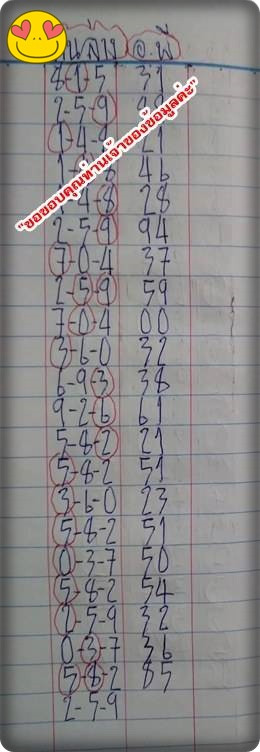 นล่าง อ.พี
8-1-5 31
2-5-9
1-4-8 21
46
4-8 28
2-5-9 94
7-0-4 37
2-5-9 59
7-0-4 00
3-6-0 32
6-9-3 38
9-2-6 61
5-8-2 21
5-8-2 51
3-6-0 23
5-8-2 51
0-3-7 50
5-8-2 54
2-5-9 32
0-3-7 36
5-8-2 85
2-5-9
"ขอขอบคุณท่านเจ้าของข้อมูลค่ะ"